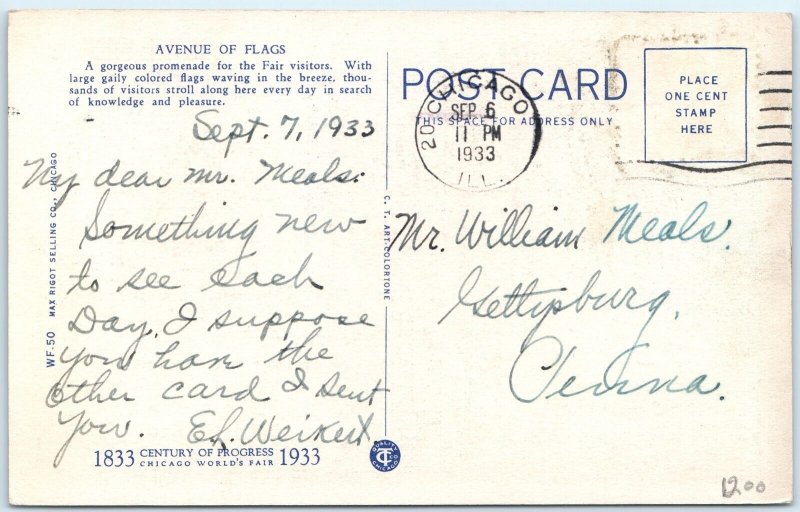 AVENUE OF FLAGS
A gorgeous promenade for the Fair visitors. With
large gaily colored flags waving in the breeze, thou-
sands of visitors stroll along here every day in search
of knowledge and pleasure.
Sept. 7, 1933
My dear Mr. Meals:
Something new
to see each
Day. I suppose
you have the
other card I sent
you. E. L. Weikert
1833 CENTURY OF PROGRESS 1933
CHICAGO WORLD'S FAIR
WF-50 MAX RIGOT SELLING CO., CHICAGO
C. T. ART-COLORTONE
QUALITY
CT CO
CHICAGO
POST CARD
THIS SPACE FOR ADDRESS ONLY
CHICAGO
20
SEP 6
11 PM
1933
ILL.
PLACE
ONE CENT
STAMP
HERE
Mr. William Meals.
Gettysburg.
Penna.
1200